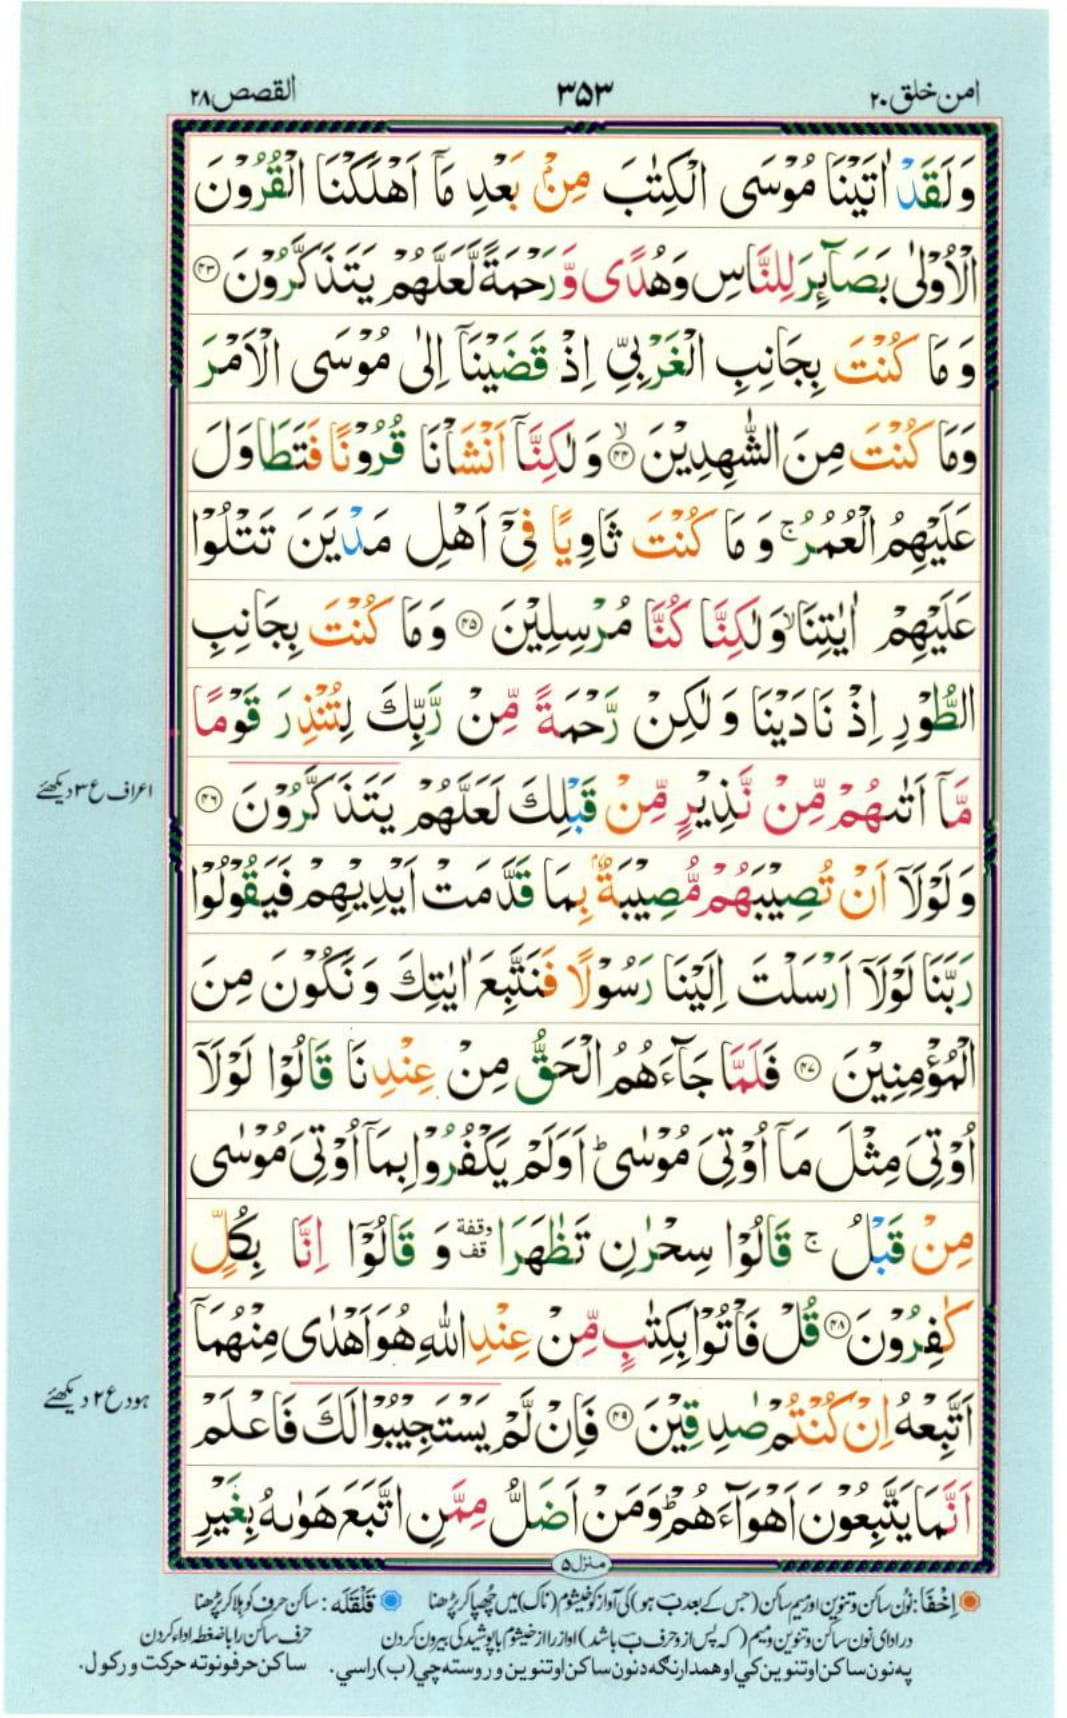 امن خلق ۲۰
۳۵۳
القصص ۲۸
وَلَقَدْ اٰتَيْنَا مُوْسَى الْكِتٰبَ مِنْۢ بَعْدِ مَاۤ اَهْلَكْنَا الْقُرُوْنَ
الْاُوْلٰى بَصَآئِرَ لِلنَّاسِ وَهُدًى وَّرَحْمَةً لَّعَلَّهُمْ يَتَذَكَّرُوْنَ ۴۳
وَمَا كُنْتَ بِجَانِبِ الْغَرْبِيِّ اِذْ قَضَيْنَاۤ اِلٰى مُوْسَى الْاَمْرَ
وَمَا كُنْتَ مِنَ الشّٰهِدِيْنَ ۙ۴۴ وَلٰكِنَّاۤ اَنْشَاْنَا قُرُوْنًا فَتَطَاوَلَ
عَلَيْهِمُ الْعُمُرُ ۚ وَمَا كُنْتَ ثَاوِيًا فِيْۤ اَهْلِ مَدْيَنَ تَتْلُوْا
عَلَيْهِمْ اٰيٰتِنَا ۙ وَلٰكِنَّا كُنَّا مُرْسِلِيْنَ ۴۵ وَمَا كُنْتَ بِجَانِبِ
الطُّوْرِ اِذْ نَادَيْنَا وَلٰكِنْ رَّحْمَةً مِّنْ رَّبِّكَ لِتُنْذِرَ قَوْمًا
مَّاۤ اَتٰىهُمْ مِّنْ نَّذِيْرٍ مِّنْ قَبْلِكَ لَعَلَّهُمْ يَتَذَكَّرُوْنَ ۴۶
اعراف ع ۳ دیکھئے
وَلَوْلَاۤ اَنْ تُصِيْبَهُمْ مُّصِيْبَةٌۢ بِمَا قَدَّمَتْ اَيْدِيْهِمْ فَيَقُوْلُوْا
رَبَّنَا لَوْلَاۤ اَرْسَلْتَ اِلَيْنَا رَسُوْلًا فَنَتَّبِعَ اٰيٰتِكَ وَنَكُوْنَ مِنَ
الْمُؤْمِنِيْنَ ۴۷ فَلَمَّا جَآءَهُمُ الْحَقُّ مِنْ عِنْدِنَا قَالُوْا لَوْلَاۤ
اُوْتِيَ مِثْلَ مَاۤ اُوْتِيَ مُوْسٰى ؕ اَوَلَمْ يَكْفُرُوْا بِمَاۤ اُوْتِيَ مُوْسٰى
مِنْ قَبْلُ ۚ قَالُوْا سِحْرٰنِ تَظٰهَرَا وقفة قف وَقَالُوْۤا اِنَّا بِكُلٍّ
كٰفِرُوْنَ ۴۸ قُلْ فَاْتُوْا بِكِتٰبٍ مِّنْ عِنْدِ اللّٰهِ هُوَ اَهْدٰى مِنْهُمَاۤ
اَتَّبِعْهُ اِنْ كُنْتُمْ صٰدِقِيْنَ ۴۹ فَاِنْ لَّمْ يَسْتَجِيْبُوْا لَكَ فَاعْلَمْ
ہود ع ۲ دیکھئے
اَنَّمَا يَتَّبِعُوْنَ اَهْوَآءَهُمْ ؕ وَمَنْ اَضَلُّ مِمَّنِ اتَّبَعَ هَوٰىهُ بِغَيْرِ
منزل ۵
اِخْفَا: نُون ساکن و تنوین اور میم ساکن (جس کے بعد ب ہو) کی آواز کو خیشوم (ناک) میں چُھپا کر پڑھنا
قَلْقَلَہ: ساکن حرف کو ہلا کر پڑھنا
در ادای نون ساکن و تنوین و میم (که پس از و حرف ب باشد) آواز را از خیشوم با پوشیدگی بیرون کردن
حرف ساکن را با ضغطہ اداء کردن
په نون ساکن او تنوین کي او همدارنګه د نون ساکن او تنوین وروسته چي (ب) راسي.
ساکن حرفونو ته حرکت ورکول.